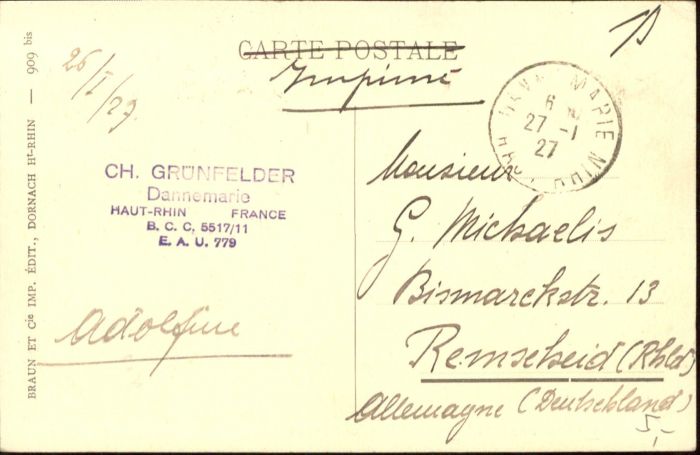 BRAUN ET Cie IMP. ÉDIT., DORNACH Ht-RHIN — 909 bis
CARTE POSTALE
Imprimé
26/I/27.
CH. GRÜNFELDER
Dannemarie
HAUT-RHIN FRANCE
B. C. C. 5517/11
E. A. U. 779
MARIE
6
27 -1
27
Monsieur
G. Michaelis
Bismarckstr. 13
Remscheid (Rhld)
Allemagne (Deutschland)
5,-